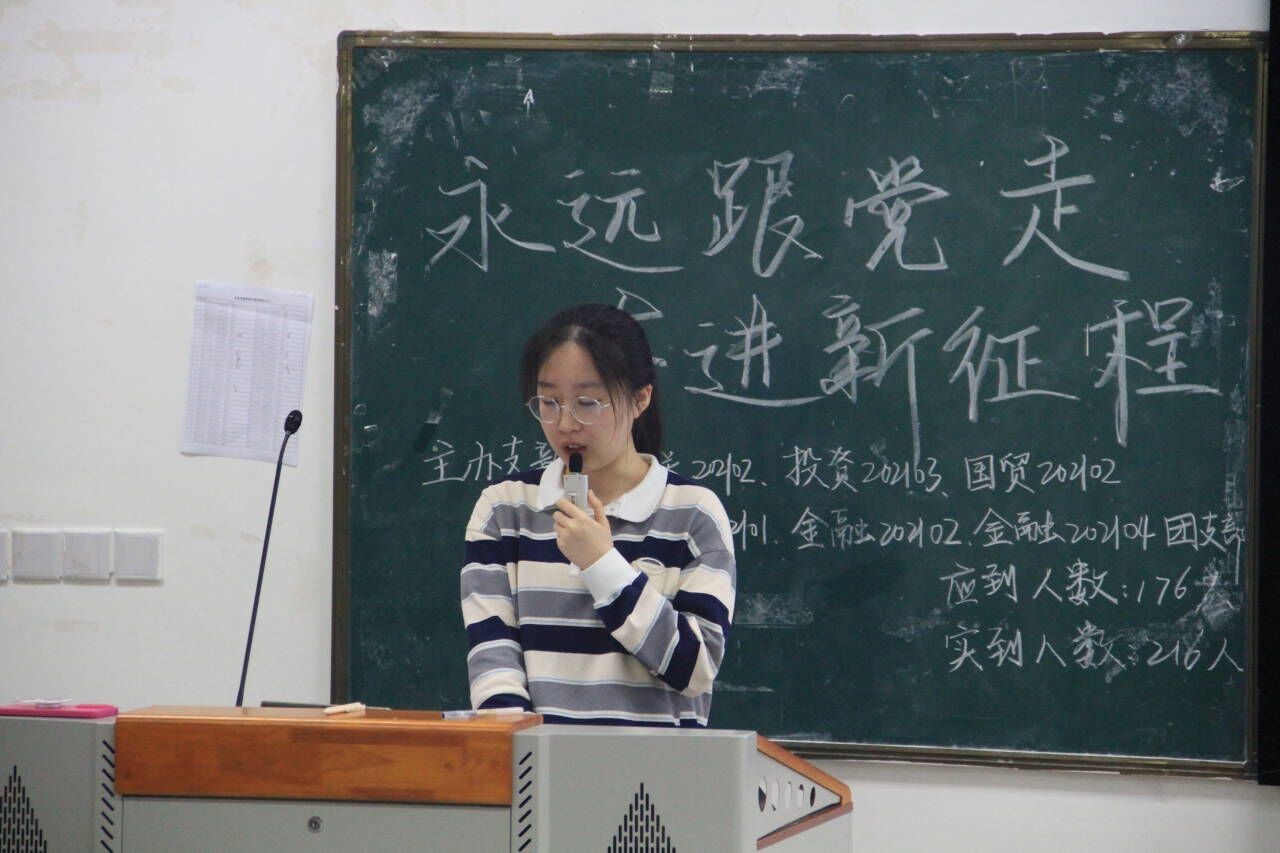 永远跟党走
进新征程
主办支部 202102、投资202103、国贸202102
2101、金融202102、金融202104团支部
应到人数:176人
实到人数:216人